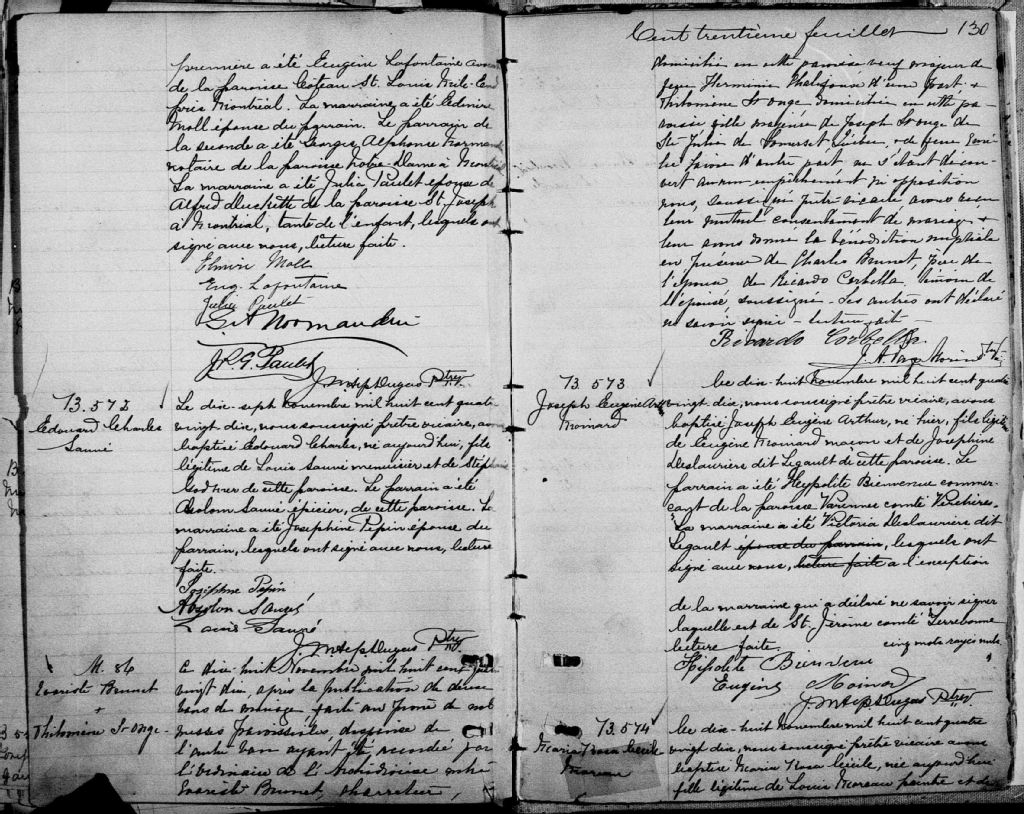 première a été Eugène Lafontaine
de la paroisse Coteau St. Louis Mile-End
près Montréal. La marraine a été Edmire
Moll épouse du parrain. Le parrain de
la seconde a été George Alphonse
notaire de la paroisse Notre-Dame à
La marraine a été Julie Paulet épouse de
Alfred de la paroisse St. Joseph
à Montréal, tante de l'enfant, lesquels ont
signé avec nous, lecture faite.
Elmire Moll
Eug. Lafontaine
Julie Paulet
Normandin
J.R.G. Paulet
Ptre
B. 572
Edouard Charles
Sauvé
Le dix-sept Novembre mil huit cent quatre
vingt dix, nous soussigné prêtre vicaire, avons
baptisé Edouard Charles, né aujourd'hui, fils
légitime de Louis Sauvé menuisier et de
de cette paroisse. Le parrain a été
Absolom Sauvé épicier, de cette paroisse. La
marraine a été Josephine Pepin épouse du
parrain, lesquels ont signé avec nous, lecture
faite.
Josephine Pepin
Absolon Sauvé
Louis Sauvé
Ptre
M. 86
Evariste Brunet
+
Philomène St Onge
Le dix-huit Novembre mil huit cent quatre
vingt dix, après la publication de deux
bans de mariage faite au prône de nos
messes paroissiales, dispense de
l'autre ban ayant été accordée par
l'Ordinaire de l'Archidiocèse entre
Evariste Brunet, charretier,
Cent trentième feuillet 130
domicilié en cette paroisse veuf majeur de
feue Herminie d'une part, &
Philomène St Onge domiciliée en cette pa-
roisse fille majeure de Joseph St Onge de
Ste Julie de Somerset & de feue
d'autre part ne s'étant décou-
vert aucun empêchement ni opposition
nous, soussigné prêtre vicaire avons reçu
leur mutuel consentement de mariage &
leur avons donné la bénédiction nuptiale
en présence de Charles Brunet, père de
l'époux, de Ricardo Corbella, témoin de
l'épouse, soussigné. Les autres ont déclaré
ne savoir signer - lecture faite -
Ricardo Corbella
B. 573
Joseph Eugène Art.
Moinard
Le dix-huit Novembre mil huit cent quatre
vingt dix, nous soussigné prêtre vicaire, avons
baptisé Joseph Eugène Arthur, né hier, fils légitime
de Eugène Moinard maçon et de Josephine
Deslaurière dit Legault de cette paroisse. Le
parrain a été Hypolite Bienvenue commer-
çant de la paroisse Varennes comté Verchères.
La marraine a été Victoria Deslaurière dit
Legault épouse du parrain, lesquels ont
signé avec nous, lecture faite à l'exception
de la marraine qui a déclaré ne savoir signer
laquelle est de St. Jérôme comté Terrebonne
lecture faite. cinq mots rayés nuls
Hypolite Bienvenu
Eugène Moinard
Ptre
B. 574
Maria Rosa Cécile
Moreau
Le dix-huit Novembre mil huit cent quatre
vingt dix, nous soussigné prêtre vicaire avons
baptisé Maria Rosa Cécile, née aujourd'hui
fille légitime de Louis Moreau peintre et de